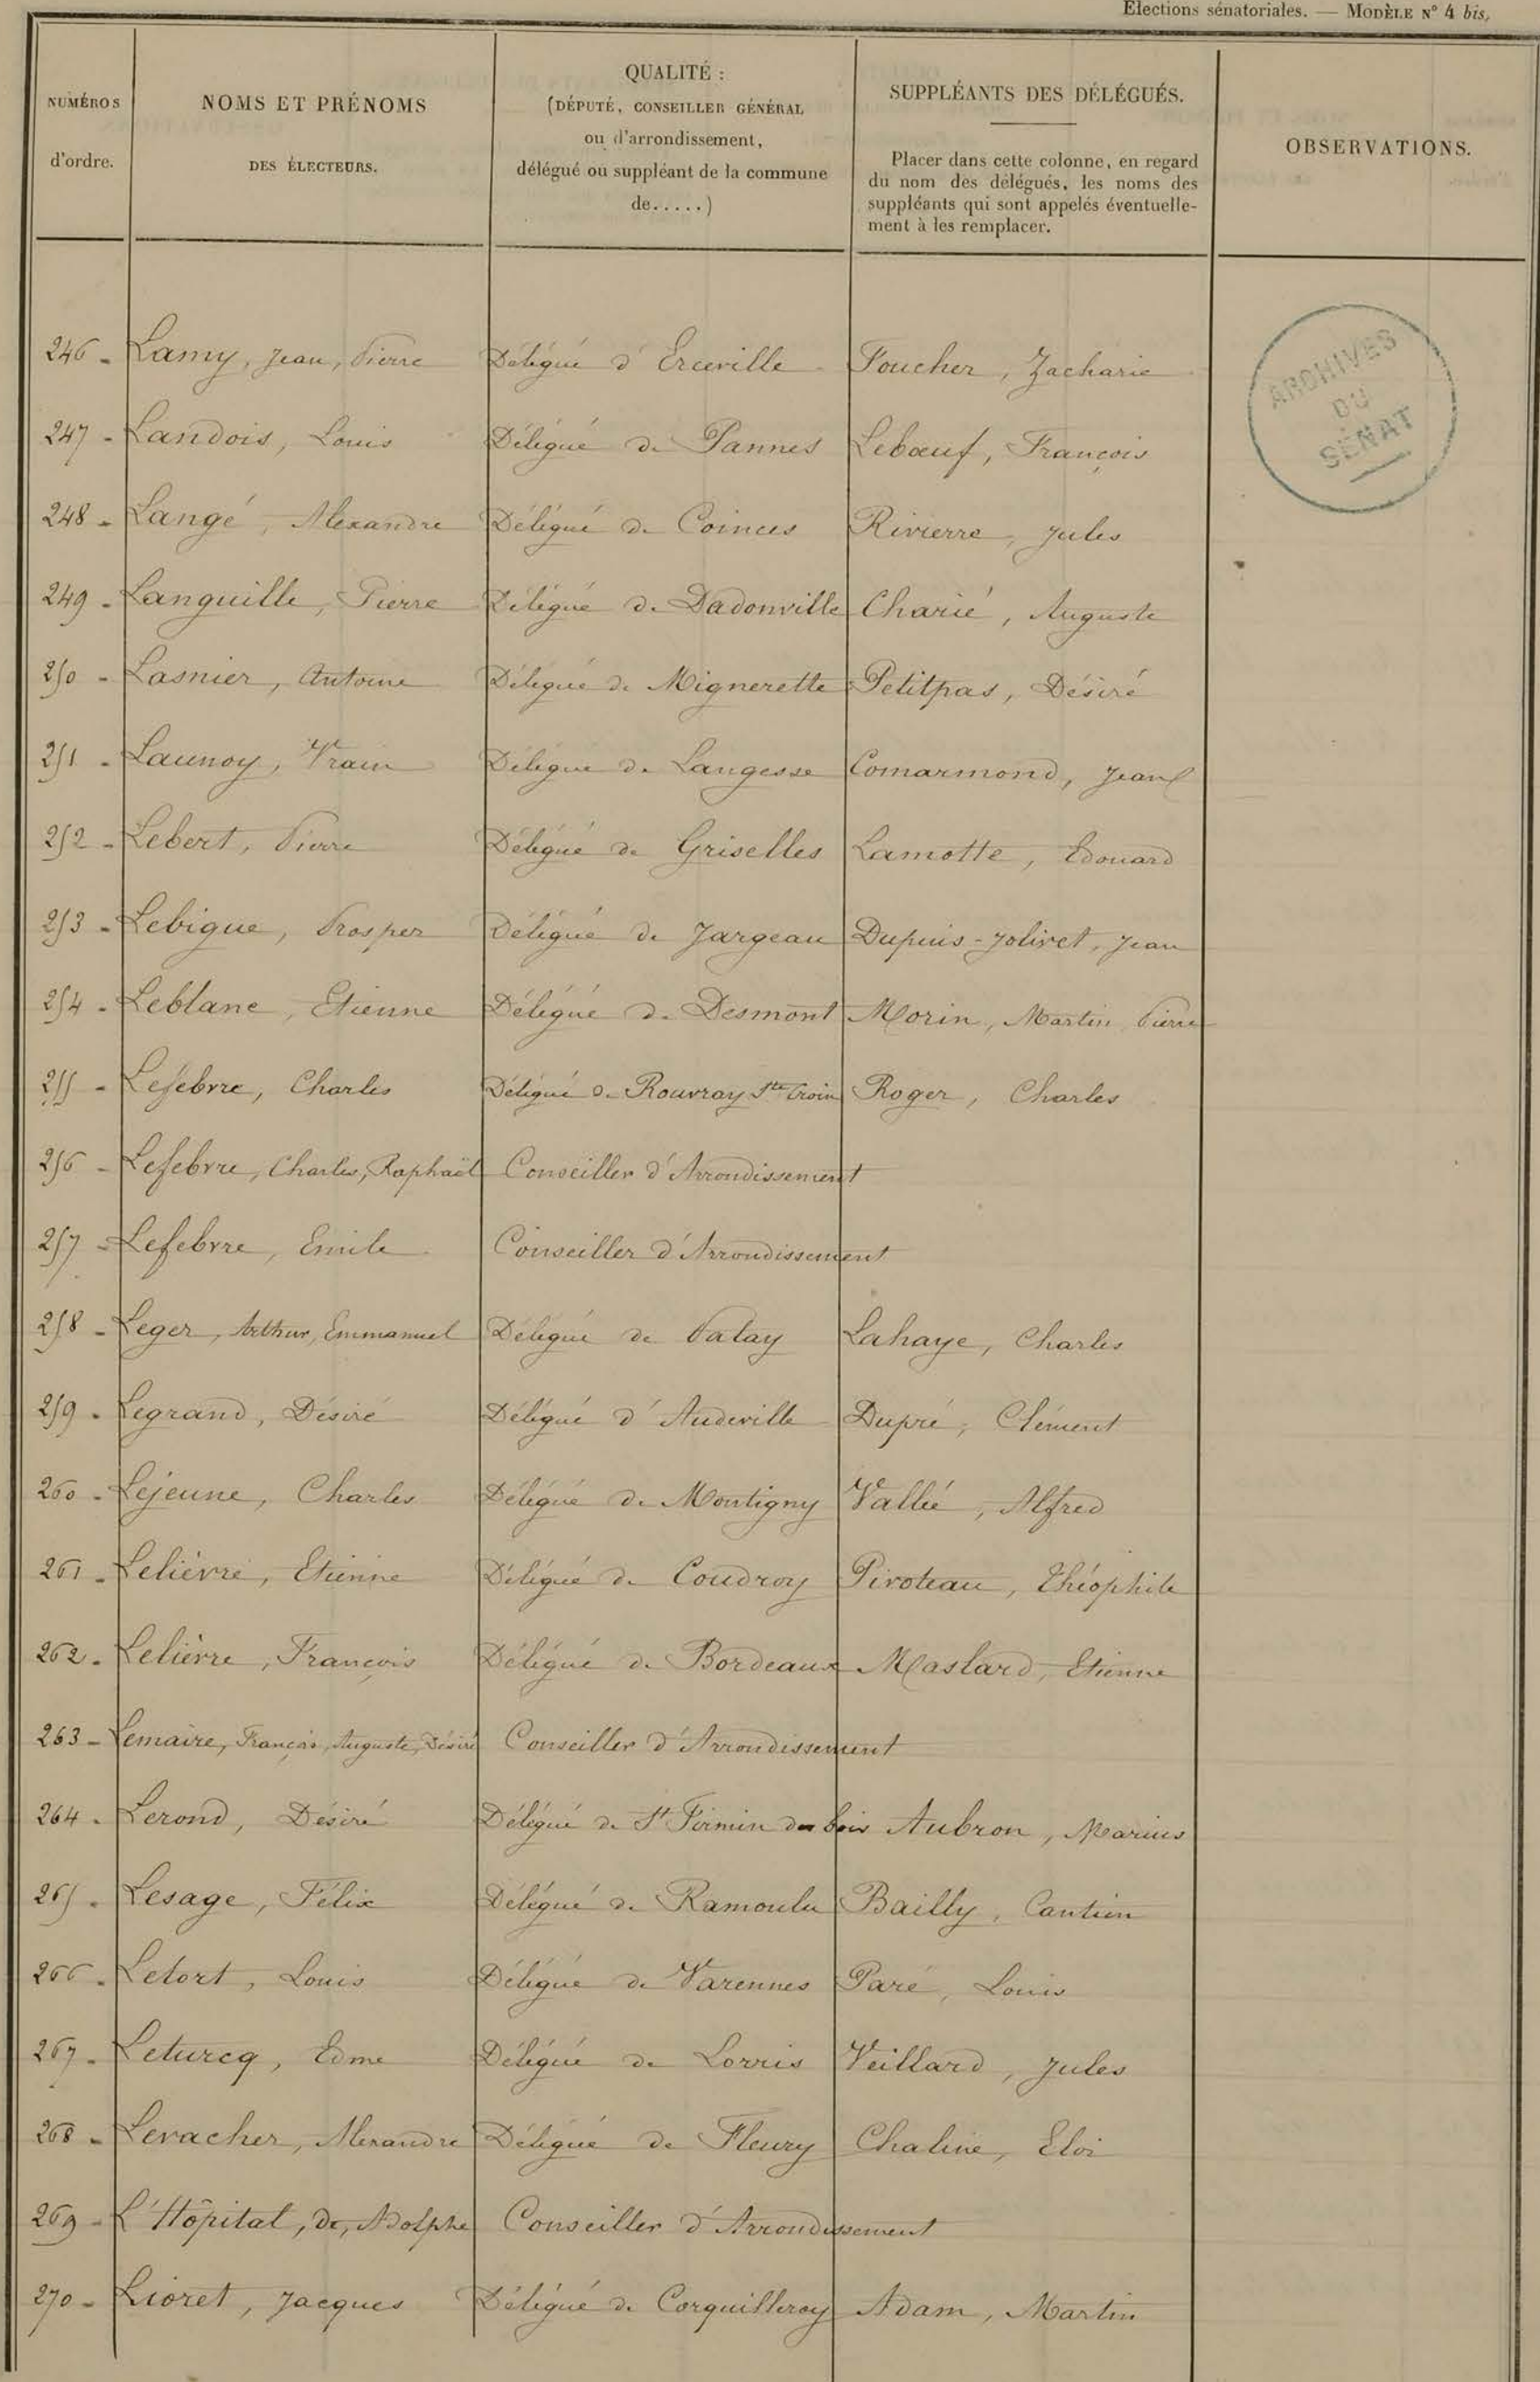 Elections sénatoriales. — MODÈLE N° 4 bis,
NUMÉROS d'ordre.
NOMS ET PRÉNOMS DES ÉLECTEURS.
QUALITÉ :
(DÉPUTÉ, CONSEILLER GÉNÉRAL
ou d'arrondissement,
délégué ou suppléant de la commune
de.....)
SUPPLÉANTS DES DÉLÉGUÉS.
Placer dans cette colonne, en regard
du nom des délégués, les noms des
suppléants qui sont appelés éventuelle-
ment à les remplacer.
OBSERVATIONS.
ARCHIVES
DU
SÉNAT
246 - Lamy, Jean, Pierre Délégué d'Erceville Foucher, Zacharie
247 - Landois, Louis Délégué de Pannes Lebœuf, François
248 - Langé, Alexandre Délégué de Coinces Rivierre, Jules
249 - Languille, Pierre Délégué de Dadonville Charié, Auguste
250 - Lasnier, Antoine Délégué de Mignerette Petitpas, Désiré
251 - Launoy, Vrain Délégué de Langesse Comarmond, Jean
252 - Lebert, Pierre Délégué de Griselles Lamotte, Edouard
253 - Lebigue, Prosper Délégué de Jargeau Dupuis-Jolivet, Jean
254 - Leblanc, Etienne Délégué de Desmont Morin, Martin Pierre
255 - Lefebvre, Charles Délégué de Rouvray Ste Croix Roger, Charles
256 - Lefebvre, Charles, Raphaël Conseiller d'Arrondissement
257 - Lefebvre, Emile Conseiller d'Arrondissement
258 - Leger, Arthur, Emmanuel Délégué de Patay Lahaye, Charles
259 - Legrand, Désiré Délégué d'Audeville Dupré, Clément
260 - Lejeune, Charles Délégué de Montigny Vallée, Alfred
261 - Lelièvre, Etienne Délégué de Coudroy Pivoteau, Théophile
262 - Lelièvre, François Délégué de Bordeaux Maslard, Etienne
263 - Lemaire, François, Auguste, Désiré Conseiller d'Arrondissement
264 - Lerond, Désiré Délégué de St Firmin des bois Aubron, Marius
265 - Lesage, Félix Délégué de Ramoulu Bailly, Cantien
266 - Letort, Louis Délégué de Varennes Paré, Louis
267 - Leturcq, Edme Délégué de Lorris Veillard, Jules
268 - Levacher, Alexandre Délégué de Fleury Chaline, Eloi
269 - L'Hôpital, de, Adolphe Conseiller d'Arrondissement
270 - Lioret, Jacques Délégué de Corquilleroy Adam, Martin